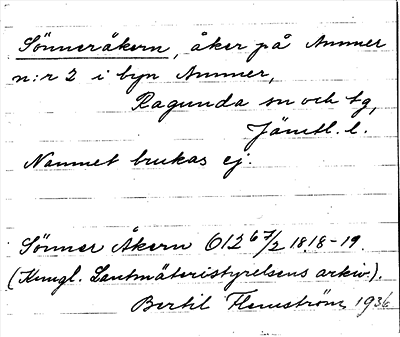 Sönneråkern, åker på Ammer
n:r 2 i byn Ammer,
Ragunda sn och tg,
Jämtl. l.
Namnet brukas ej.
Sönner Åkern O12 67/2 1818-19.
(Kungl. Lantmäteristyrelsens arkiv).
Bertil Flemström 1936